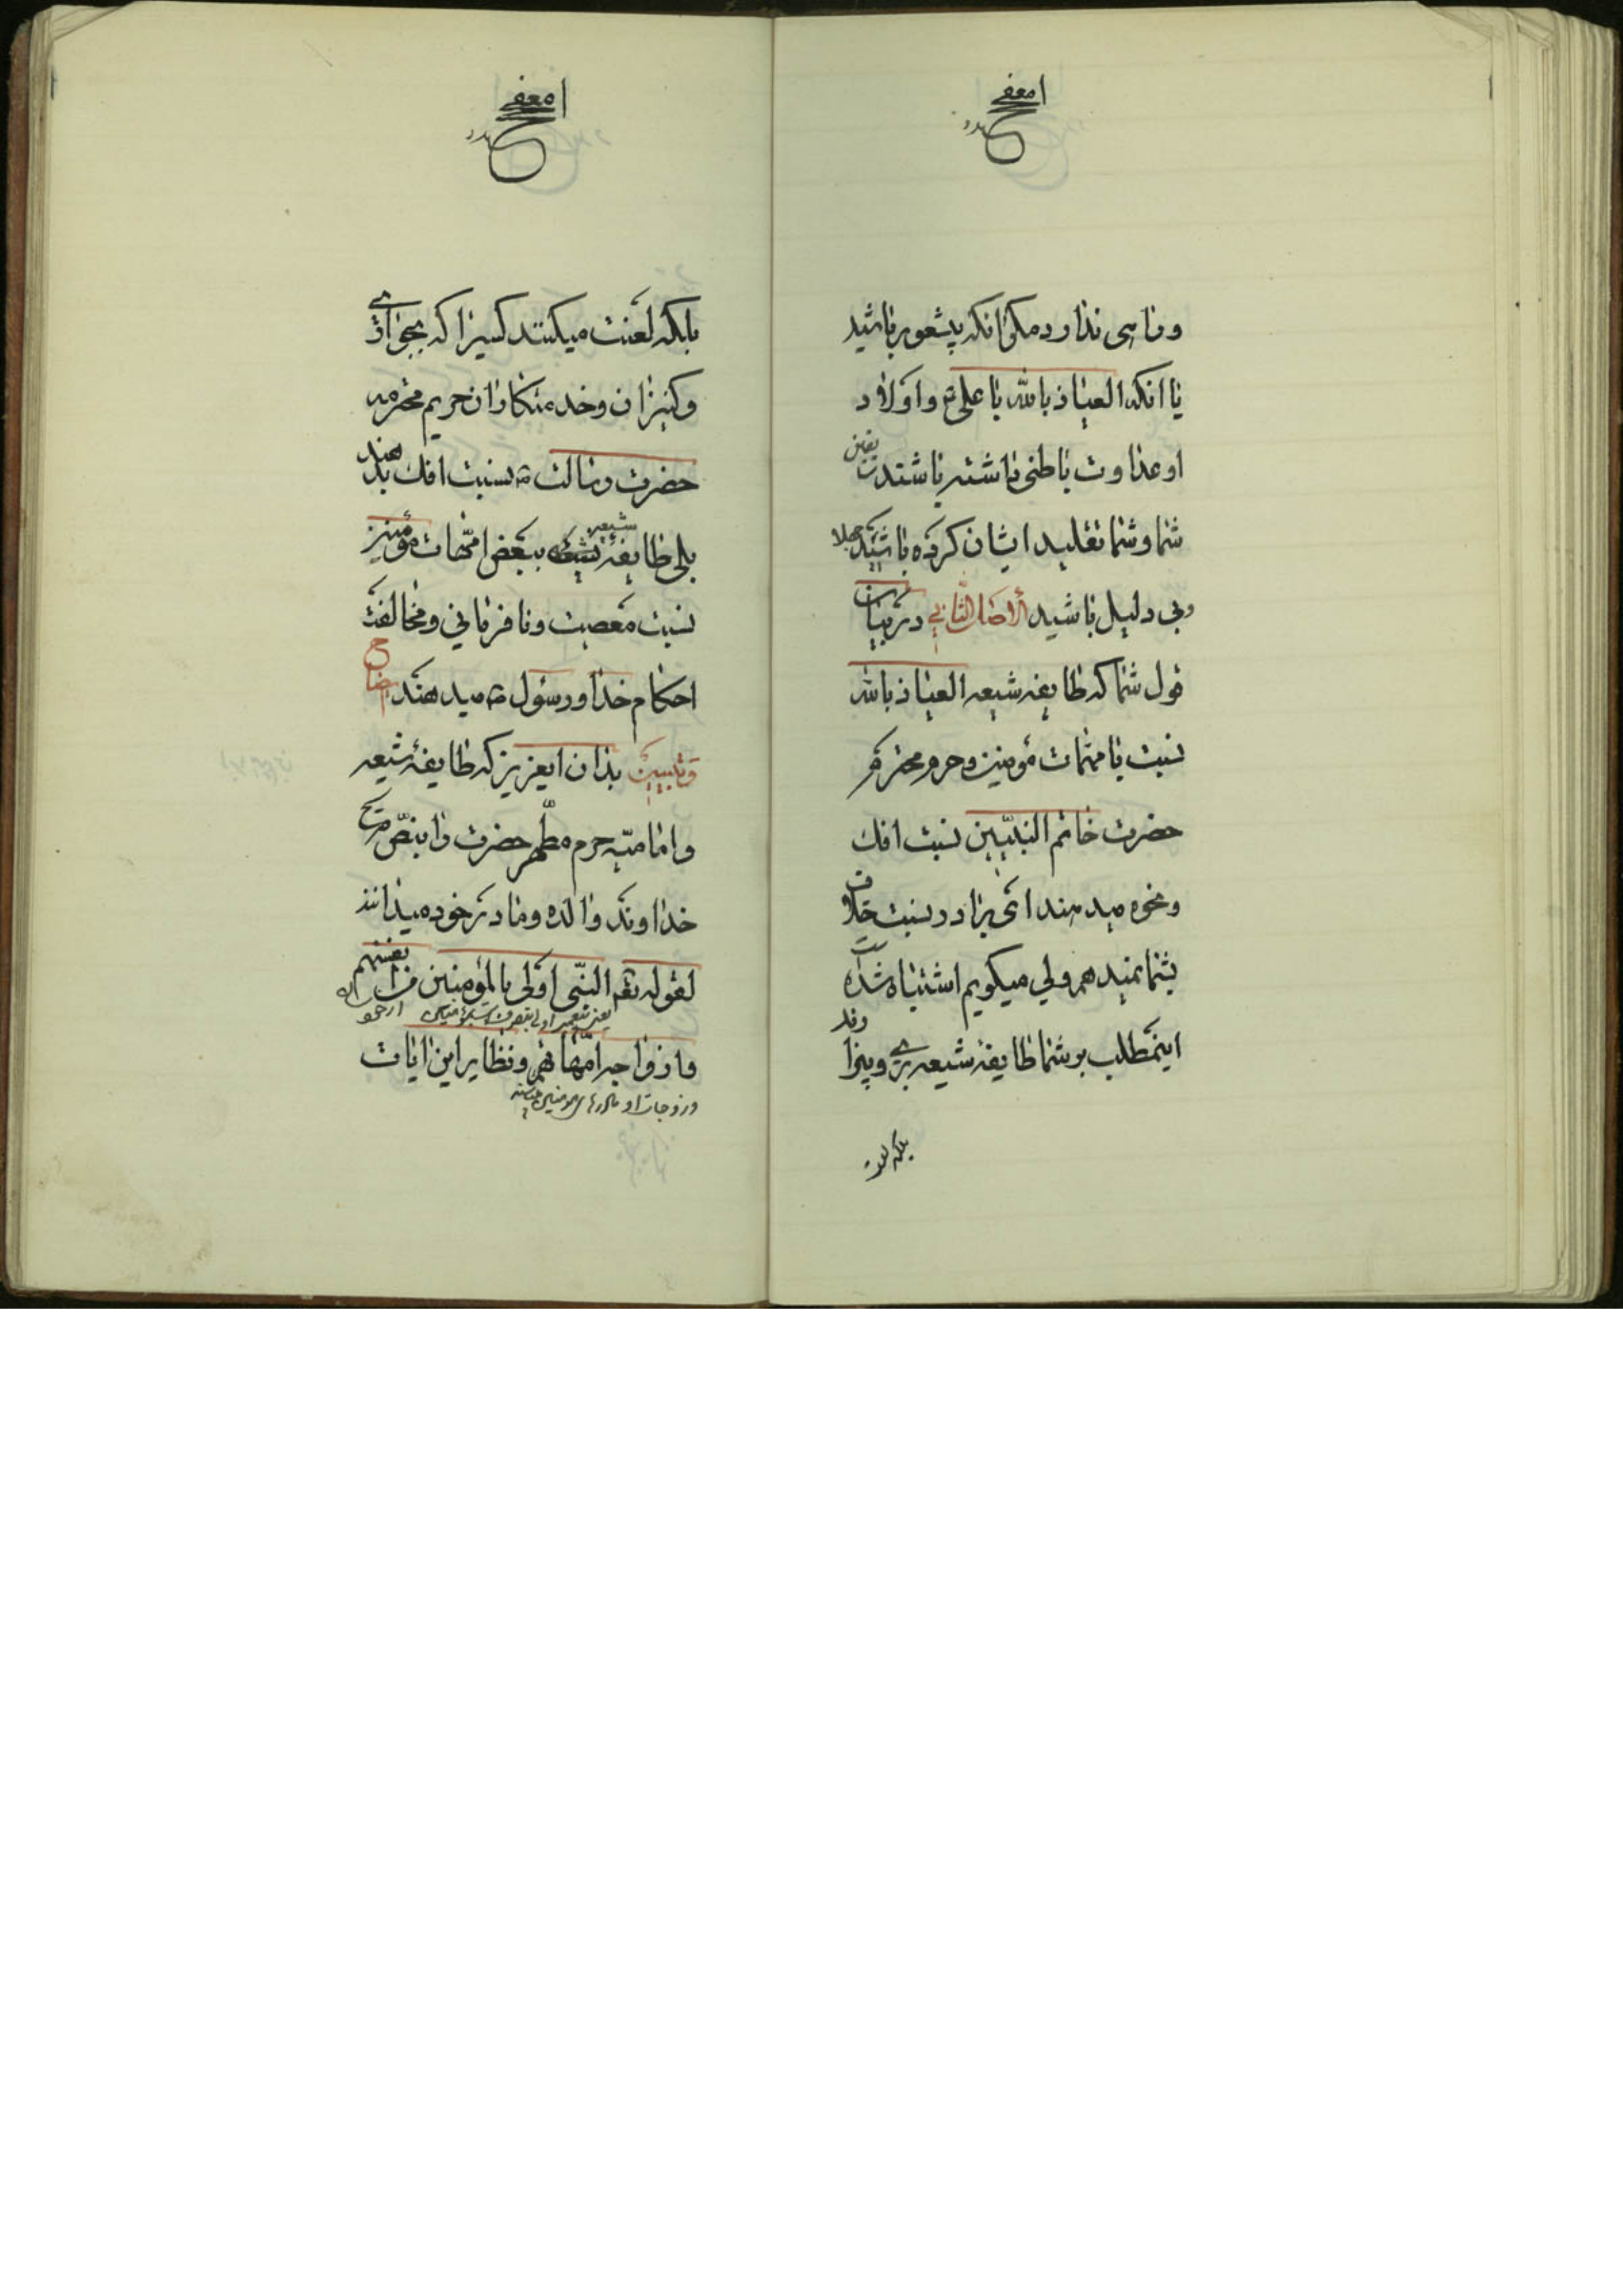 وناسی ندارد مکر انکه بیشعور باشید
یا انکه العیاذ بالله با علی ع و اولاد
او عداوت باطنی داشته باشند یقین
شما و شما تقلید ایشان کرده باشید جهلا
وبی دلیل باشید الاصل الثانی در بیان
قول شما که طایفه شیعه العیاذ بالله
نسبت بامهات مؤمنین و حرم محترم
حضرت خاتم النبیین نسبت افک
و نحوه میدهند ای برادر نسبت خلاف
بشما نمیدهم ولی میکویم اشتباه شده است
اینمطلب بر شما طایفه شیعه بری و بیزارند
بلکه لعنت
بلکه لعنت میکنند کسیرا که بجواری
وکنیزان وخدمتکاران حریم محترمه
حضرت رسالت ص نسبت افک بدهند
بلی طایفه شیعه ببعض امهات مؤمنین
نسبت معصیت ونافرمانی ومخالفت
احکام خدا ورسول ص میدهند ایضاح
وتبیین بدان ایعزیز که طایفه شیعه
وامامیه حرم مطهر حضرت را بنص صریح
خداوند والده ومادر خود میدانند
لقوله تعه النبی اولی بالمؤمنین من انفسهم
یعنی پیغمبر اولی بتصرف است بمؤمنین
وازواجه امهاتهم ونظایر این ایات
وزوجات او مادرهای مؤمنین هستند